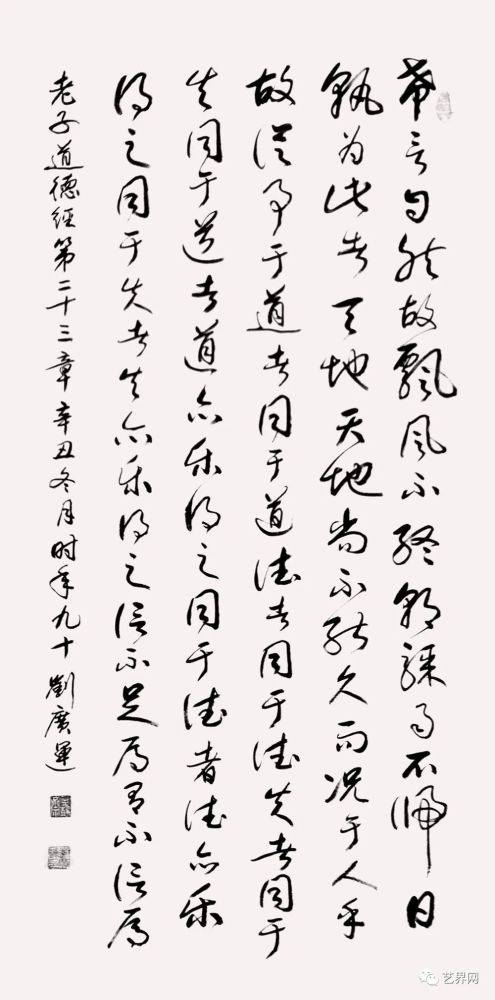 希言自然故飄風不終朝驟雨不日
孰为此者天地天地尚不能久而况于人乎
故從事于道者同于道德者同于德失者同于
失同于道者道亦樂得之同于德者德亦樂
得之同于失者失亦樂得之信不足焉有不信焉
老子道德經第二十三章辛丑冬月时年九十劉廣運
艺界网